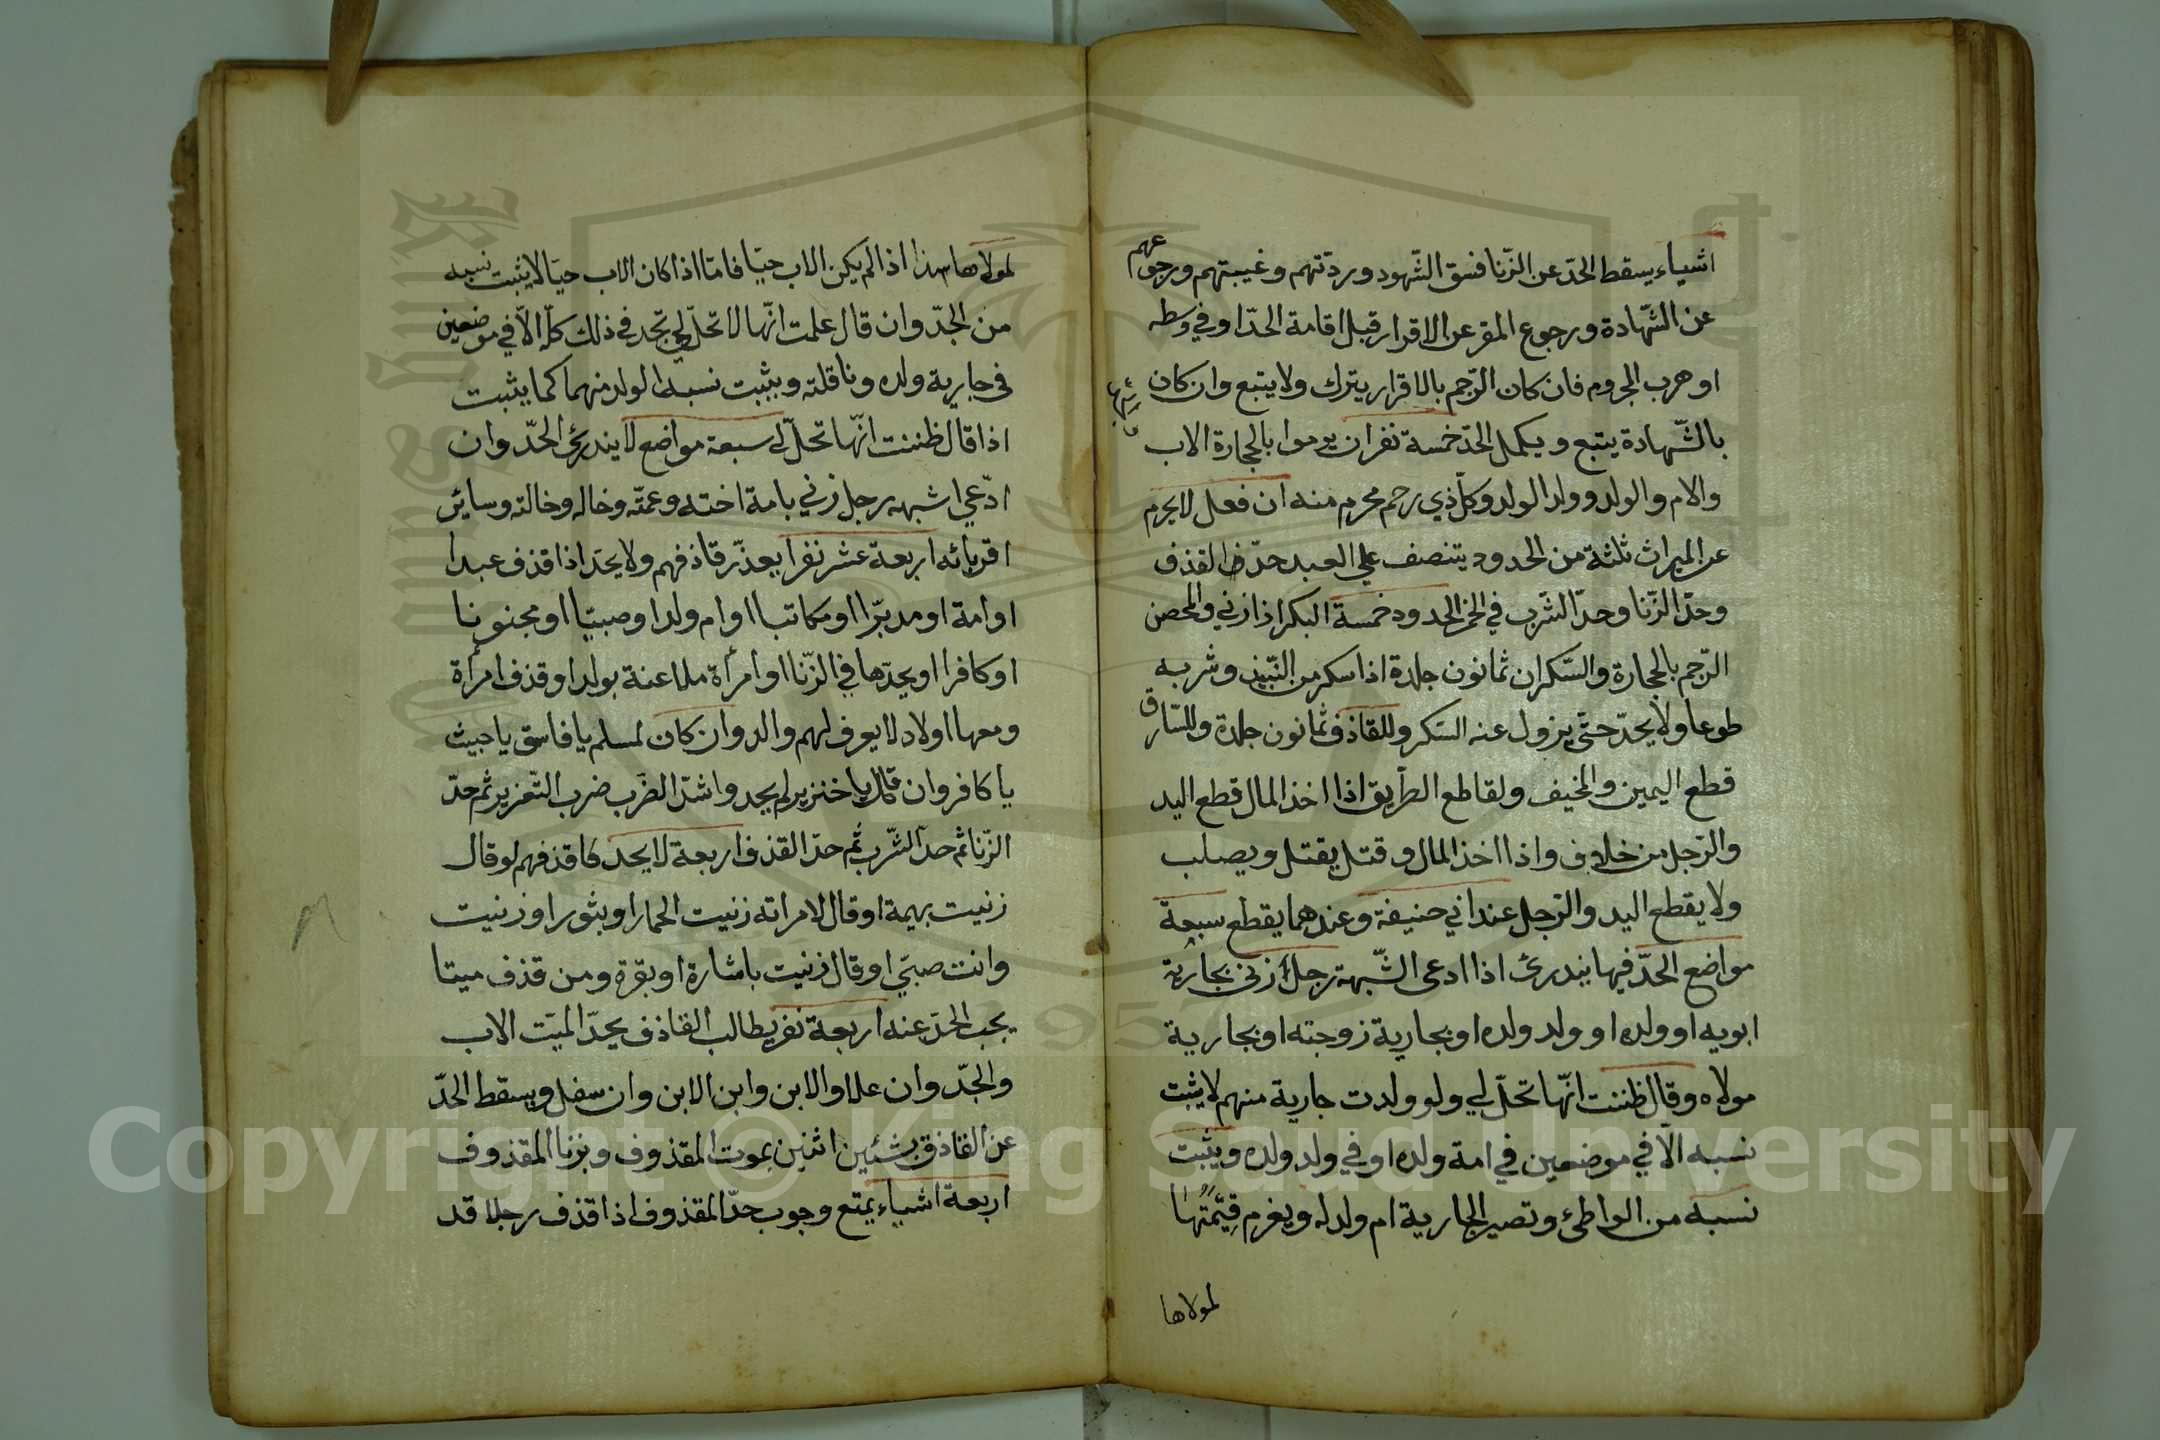 اشياء يسقط الحدّ عن الزّنا فسق الشّهود وردّتهم وغيبتهم ورجوعهم
عن الشّهادة ورجوع المقر عن الاقرار قبل اقامة الحدّ او في وسطه
او هرب المرجوم فان كان الرّجم بالاقرار يترك ولا يتبع وان كان
بالشّهادة يتبع ويكمل الحدّ خمسة نفر ان يرموا بالحجارة الاب
والام والولد وولد الولد وكلّ ذي رحم محرم منه ان فعل لا يحرم
عن الميراث ثلثة من الحدود يتنصف على العبد حدّ القذف
وحدّ الزّنا وحدّ الشّرب في الخمر الحدود خمسة البكر اذا زني والمحصن
الرّجم بالحجارة والسّكران ثمانون جلدة اذا سكر من النّبيذ وشربه
طوعا ولا يحدّ حتّى يزول عنه السّكر وللقاذف ثمانون جلدة وللسّارق
قطع اليمين والمخيف ولقاطع الطّريق اذا اخذ المال قطع اليد
والرّجل من خلاف واذا اخذ المال وقتل يقتل ويصلب
ولا يقطع اليد والرّجل عند ابي حنيفة وعندهما يقطع سبعة
مواضع الحدّ فيها يندرئ اذا ادعى الشّبهة رجل زنى بجارية
ابويه او ولده او ولد ولده او بجارية زوجته او بجارية
مولاه وقال ظننت انّها تحلّ لي ولو ولدت جارية منهم لا يثبت
نسبه الّا في موضعين في امة ولده او في ولد ولده ويثبت
نسبه من الواطئ وتصير الجارية ام ولد له ويغرم قِيمَتُها
لمولاها
لمولاها هذا اذا لم يكن الاب حيّا فامّا اذا كان الاب حيّا لا يثبت نسبه
من الجدّ وان قال علمت انّها لا تحلّ لي يحد في ذلك كلّه الّا في موضعين
في جارية ولده وناقلته ويثبت نسبه الولد منهما كما يثبت
اذا قال ظننت انّها تحلّ لي سبعة مواضع لا يندرئ الحدّ وان
ادّعي اشبهه رجل زني بامة اخته وعمّته وخاله وخالته وسائر
اقربائه اربعة عشر نفرا يعذّر قاذفهم ولا يحدّ اذا قذف عبدا
او امة او مدبّرا او مكاتبا او ام ولد او صبيّا او مجنونا
او كافرا او يحدّها في الزّنا او امرأة ملاعنة بولد او قذف امرأة
ومعها اولاد لا يعرف لهم والد وان كان لمسلم يا فاسق يا خبيث
يا كافر وان قال يا خنزير لم يحد واشدّ الضّرب ضرب التّعزير ثم حدّ
الزّنا ثم حدّ الشّرب ثم حدّ القذف اربعة لا يحد قاذفهم لو قال
زنيت بهيمة او قال لامراته زنيت الحمار او بثور او زنيت
وانت صبيّ او قال زنيت باشارة او بقرة ومن قذف ميتا
يجب الحدّ عنه اربعة نفر يطالب القاذف بحدّ الميّت الاب
والجدّ وان علا والابن وابن الابن وان سفل ويسقط الحدّ
عن القاذف بشيئين اثنين بموت المقذوف وبزنا المقذوف
اربعة اشياء يمتع وجوب حدّ المقذوف اذا قذف رجلا قد
Copyright © King Saud University
King Saud University
1957